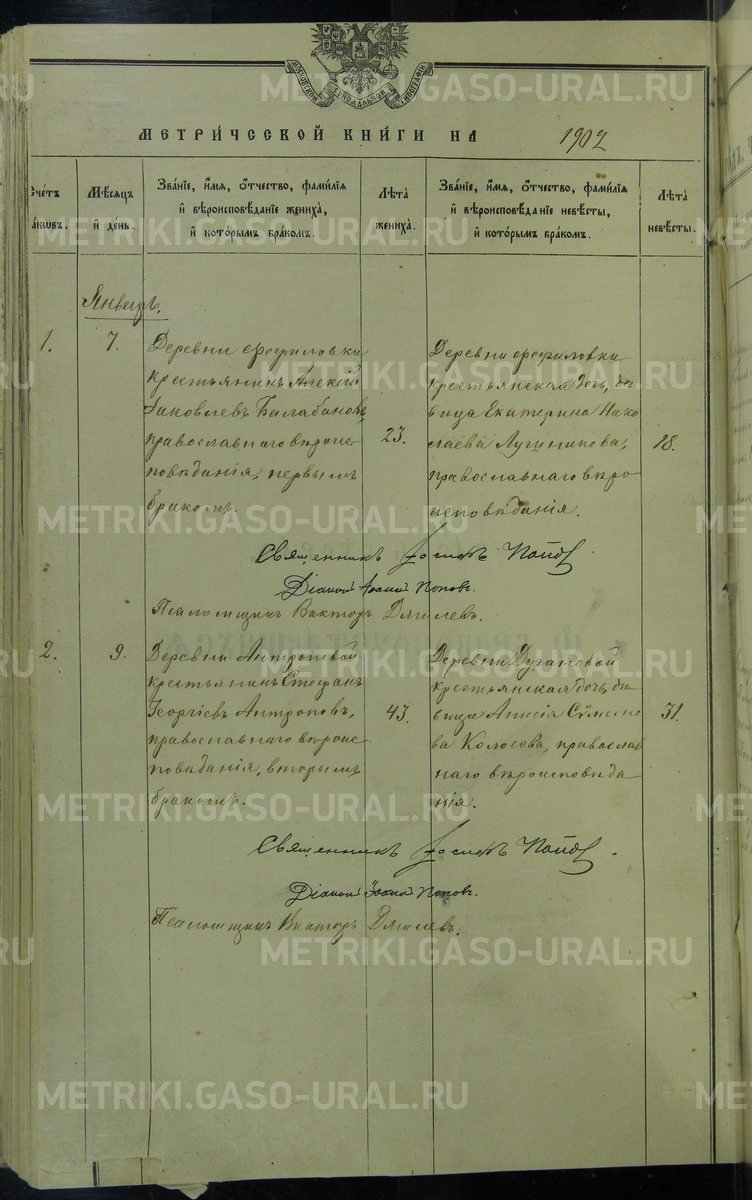 МОСКОВСКОЙ СѴНОДАЛЬНОЙ ТИПОГРАФІИ
МЕТРИ́ЧЕСКОЙ КНИ́ГИ НА 1902
Счéтъ браковъ.
Мѣ́сяцъ и́ дéнь.
Звáнїе, и́мѧ, ѻ́тчество, фами́лїѧ и́ вѣроисповѣ́данїе женихà, и́ котóрымъ брáкомъ.
Лѣтà женихà.
Звáнїе, и́мѧ, ѻ́тчество, фами́лїѧ и́ вѣроисповѣ́данїе невѣ́сты, и́ котóрымъ брáкомъ.
Лѣтà невѣ́сты.
Январь.
1.
7.
Деревни Ерефиловки
крестьянинъ Алексій
Іаковлевъ Балабановъ,
православнаго вѣроис-
повѣданія, первымъ
бракомъ.
23.
Деревни Ерефиловки
крестьянская дочь, дѣ-
вица Екатерина Нико-
лаева Лучникова,
православнаго вѣро-
исповѣданія.
18.
Священникъ Іосифъ Поповъ
Діаконъ Іоаннъ Поповъ.
Псаломщикъ Викторъ Дягилевъ.
2.
9.
Деревни Антроповой
крестьянинъ Стефанъ
Георгіевъ Антроповъ,
православнаго вѣроис-
повѣданія, вторымъ
бракомъ.
43.
Деревни Дугановой
крестьянская дочь, дѣ-
вица Анисія Сѵмеоно-
ва Колосова, православ-
наго вѣроисповѣда-
нія.
31.
Священникъ Іосифъ Поповъ.
Діаконъ Іоаннъ Поповъ.
Псаломщикъ Викторъ Дягилевъ.
METRIKI.GASO-URAL.RU